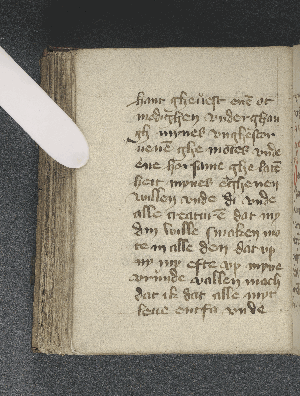 hant gheuest enē ot
modighen vnderghan
gh mynes vnghestor
uene ghe motes vnde
ene horsame ghe late
heit mynes eghenen
willen vnde di vnde
alle creaturē dat my
din wille smaken mo
te in alle den dat vp
my my efte vp myne
vrunde vallen mach
dat ik dat alle myt
leue entfa vnde